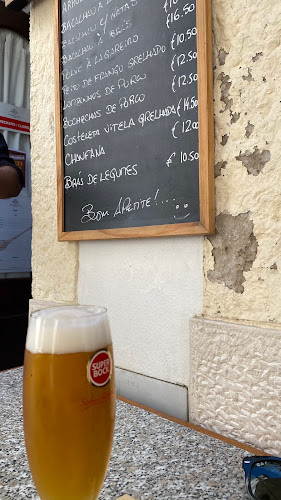 ARROZ
BACALHAU À
BACALHAU C/ NATAS €10.
BACALHAU À BRÁS €16.50
POLVO À LAGAREIRO €
PEITO DE FRANGO GRELHADO €10.50
LOMBINHOS DE PORCO €12.50
BOCHECHAS DE PORCO €12.50
COSTELETA VITELA GRELHADA €14.50
CHANFANA €12.00
BRÁS DE LEGUMES €10.50
BOM APETITE!...
SUPER
BOCK